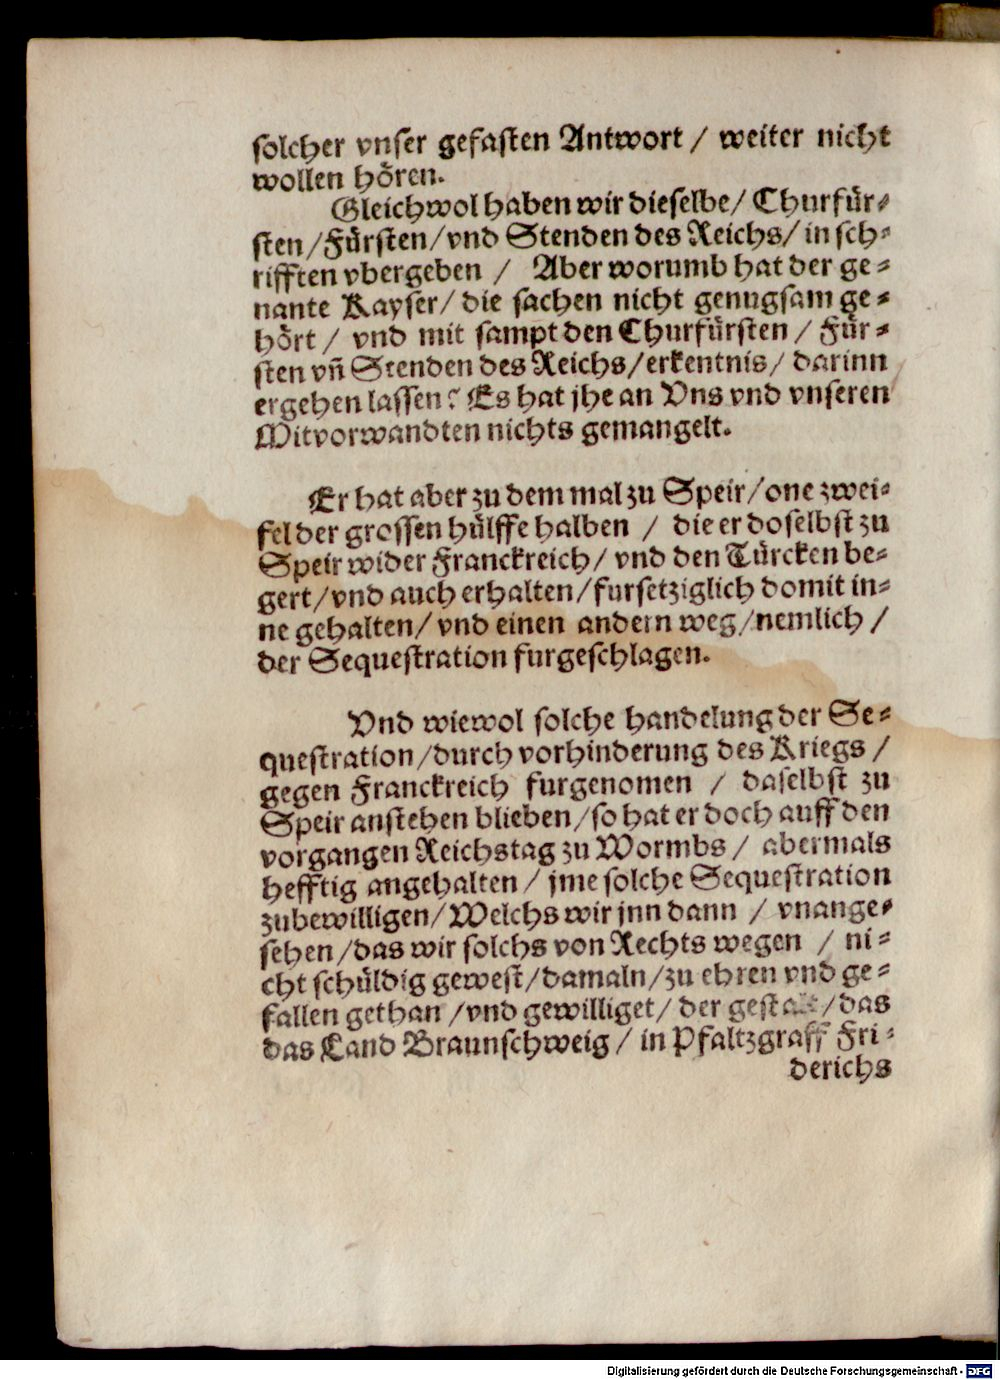 solcher vnser gefasten Antwort / weiter nicht
wollen hören.
Gleichwol haben wir dieselbe/ Churfür-
sten/Fürsten/vnd Stenden des Reichs/ in sch-
rifften vbergeben / Aber worumb hat der ge-
nante Kayser/ die sachen nicht genugsam ge-
hört / vnd mit sampt den Churfürsten / Für-
sten vñ Stenden des Reichs/erkentnis/ darinn
ergehen lassen? Es hat jhe an Vns vnd vnseren
Mitvorwandten nichts gemangelt.
Er hat aber zu dem mal zu Speir/one zwei-
fel der grossen hülffe halben / die er doselbst zu
Speir wider Franckreich/ vnd den Türcken be-
gert/vnd auch erhalten/fursetziglich domit in-
ne gehalten/ vnd einen andern weg/nemlich /
der Sequestration furgeschlagen.
Vnd wiewol solche handelung der Se-
questration/durch vorhinderung des Kriegs /
gegen Franckreich furgenomen / daselbst zu
Speir anstehen blieben/so hat er doch auff den
vorgangen Reichstag zu Wormbs / abermals
hefftig angehalten / jme solche Sequestration
zubewilligen/ Welchs wir jnn dann / vnange-
sehen/das wir solchs von Rechts wegen / ni-
cht schüldig gewest/damaln/zu ehren vnd ge-
fallen gethan /vnd gewilliget/ der gestalt/das
das Land Braunschweig / in Pfaltzgraff Fri-
derichs
Digitalisierung gefördert durch die Deutsche Forschungsgemeinschaft - DFG